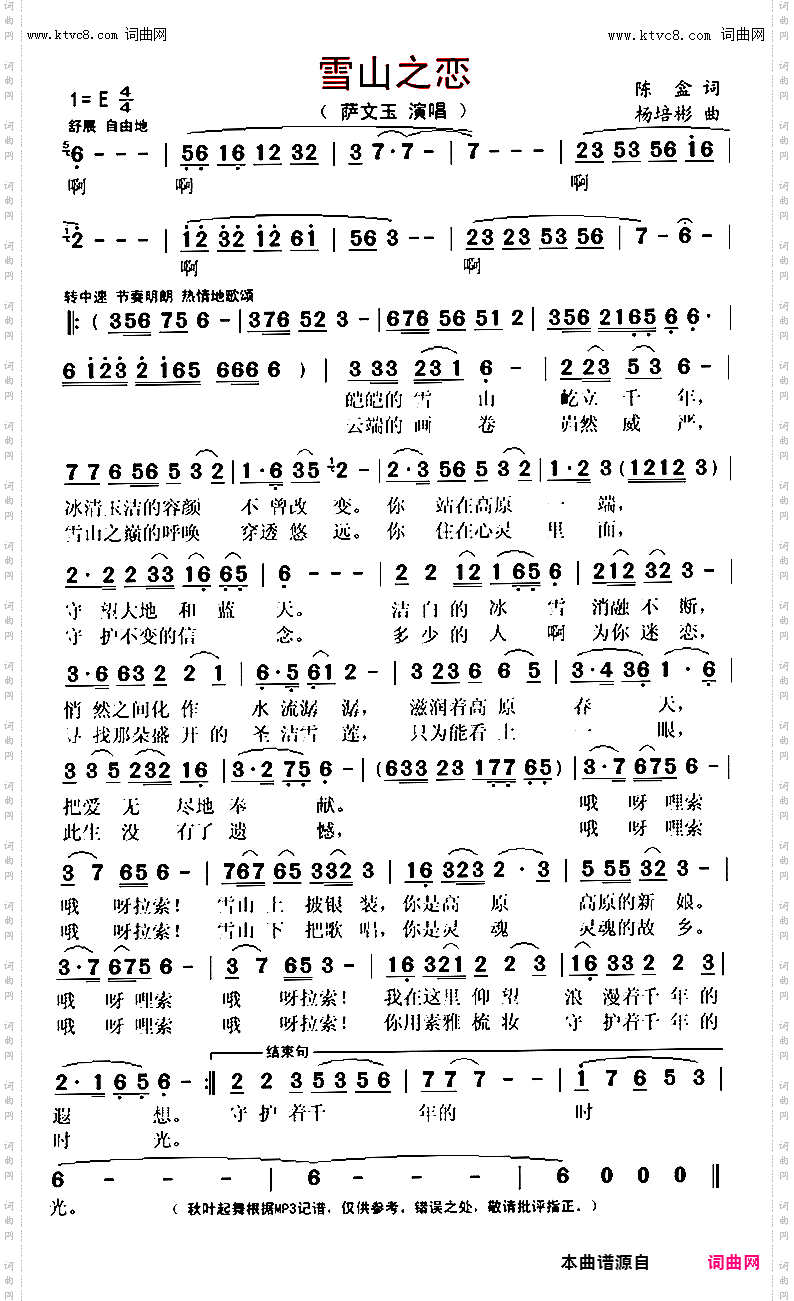 www.ktvc8.com 词曲网 www.ktvc8.com 词曲网
雪山之恋
1=E 4/4 （ 萨文玉 演唱 ） 陈 盒 词
舒展 自由地 杨培彬 曲
6 - - - | 56 16 12 32 | 3 7·7 - | 7 - - - | 23 53 56 i6 |
啊 啊 啊
2 - - - | 12 32 12 6i | 56 3 - - | 23 23 53 56 | 7 - 6 - |
啊 啊
转中速 节奏明朗 热情地歌颂
‖: ( 356 75 6 - | 376 52 3 - | 676 56 51 2 | 356 2165 6 6· |
6 123 2 165 666 6 ) | 3 33 23 1 6 - | 2 23 53 6 - |
皑皑的 雪 山 屹立 千 年，
云端的 画 卷 岿然 威 严，
7 7 6 56 5 3 2 | 1·6 35 2 - | 2·3 56 5 3 | 1·2 3 (1212 3) |
冰清玉洁的容颜 不 曾改 变。你 站在高原 一 端，
雪山之巅的呼唤 穿透悠 远。你 住在心灵 里 面，
2· 2 2 33 16 65 | 6 - - - | 2 2 12 1 65 | 212 32 3 - |
守 望大地 和 蓝 天。 洁 白 的 冰 雪 消融 不 断，
守 护不变的信 念。 多 少 的 人 啊 为你 迷 恋，
3·6 63 2 2 1 | 6·5 61 2 - | 3 3236 6 5 | 3·4 36 1 ·6 |
悄 然之间化 作 水 流潺 潺， 滋润着高 原 春 天，
寻 找那朵盛 开 的 圣 洁雪 莲， 只为能看 上 一 眼，
3 3 5 232 2 16 | 3·2 75 6 - | (633 23 177 65) | 3·7 675 6 - |
把爱 无 尽地 奉 献。 哦 呀 哩索
此生 没 有了 遗 憾， 哦 呀 哩索
3 7 65 6 - | 767 65 332 3 | 16 323 2 ·3 | 5 55 32 3 - |
哦 呀拉索！ 雪山 上 披银 装，你是高 原 高原的新 娘。
哦 呀拉索！ 雪山 下 把歌 唱，你是灵 魂 灵魂的故 乡。
3·7 675 6 - | 3 7 65 3 - | 16 321 2 2 3 | 16 33 2 2 3 |
哦 呀 哩索 哦 呀拉索！ 我在这里 仰 望 浪 漫着千 年的
哦 呀 哩索 哦 呀拉索！ 你用素雅 梳 妆 守 护着千 年的
结束句
2· 1 65 6 - :‖ 2 2 35 356 | 7 7 7 - - | i 7 65 3 |
遐 想。 守 护 着千 年的 时
时 光。
6 - - - | 6 - - - | 6 0 0 0 ‖
光。 （ 秋叶起舞根据MP3记谱，仅供参考。错误之处，敬请批评指正。）
本曲谱源自 词曲网